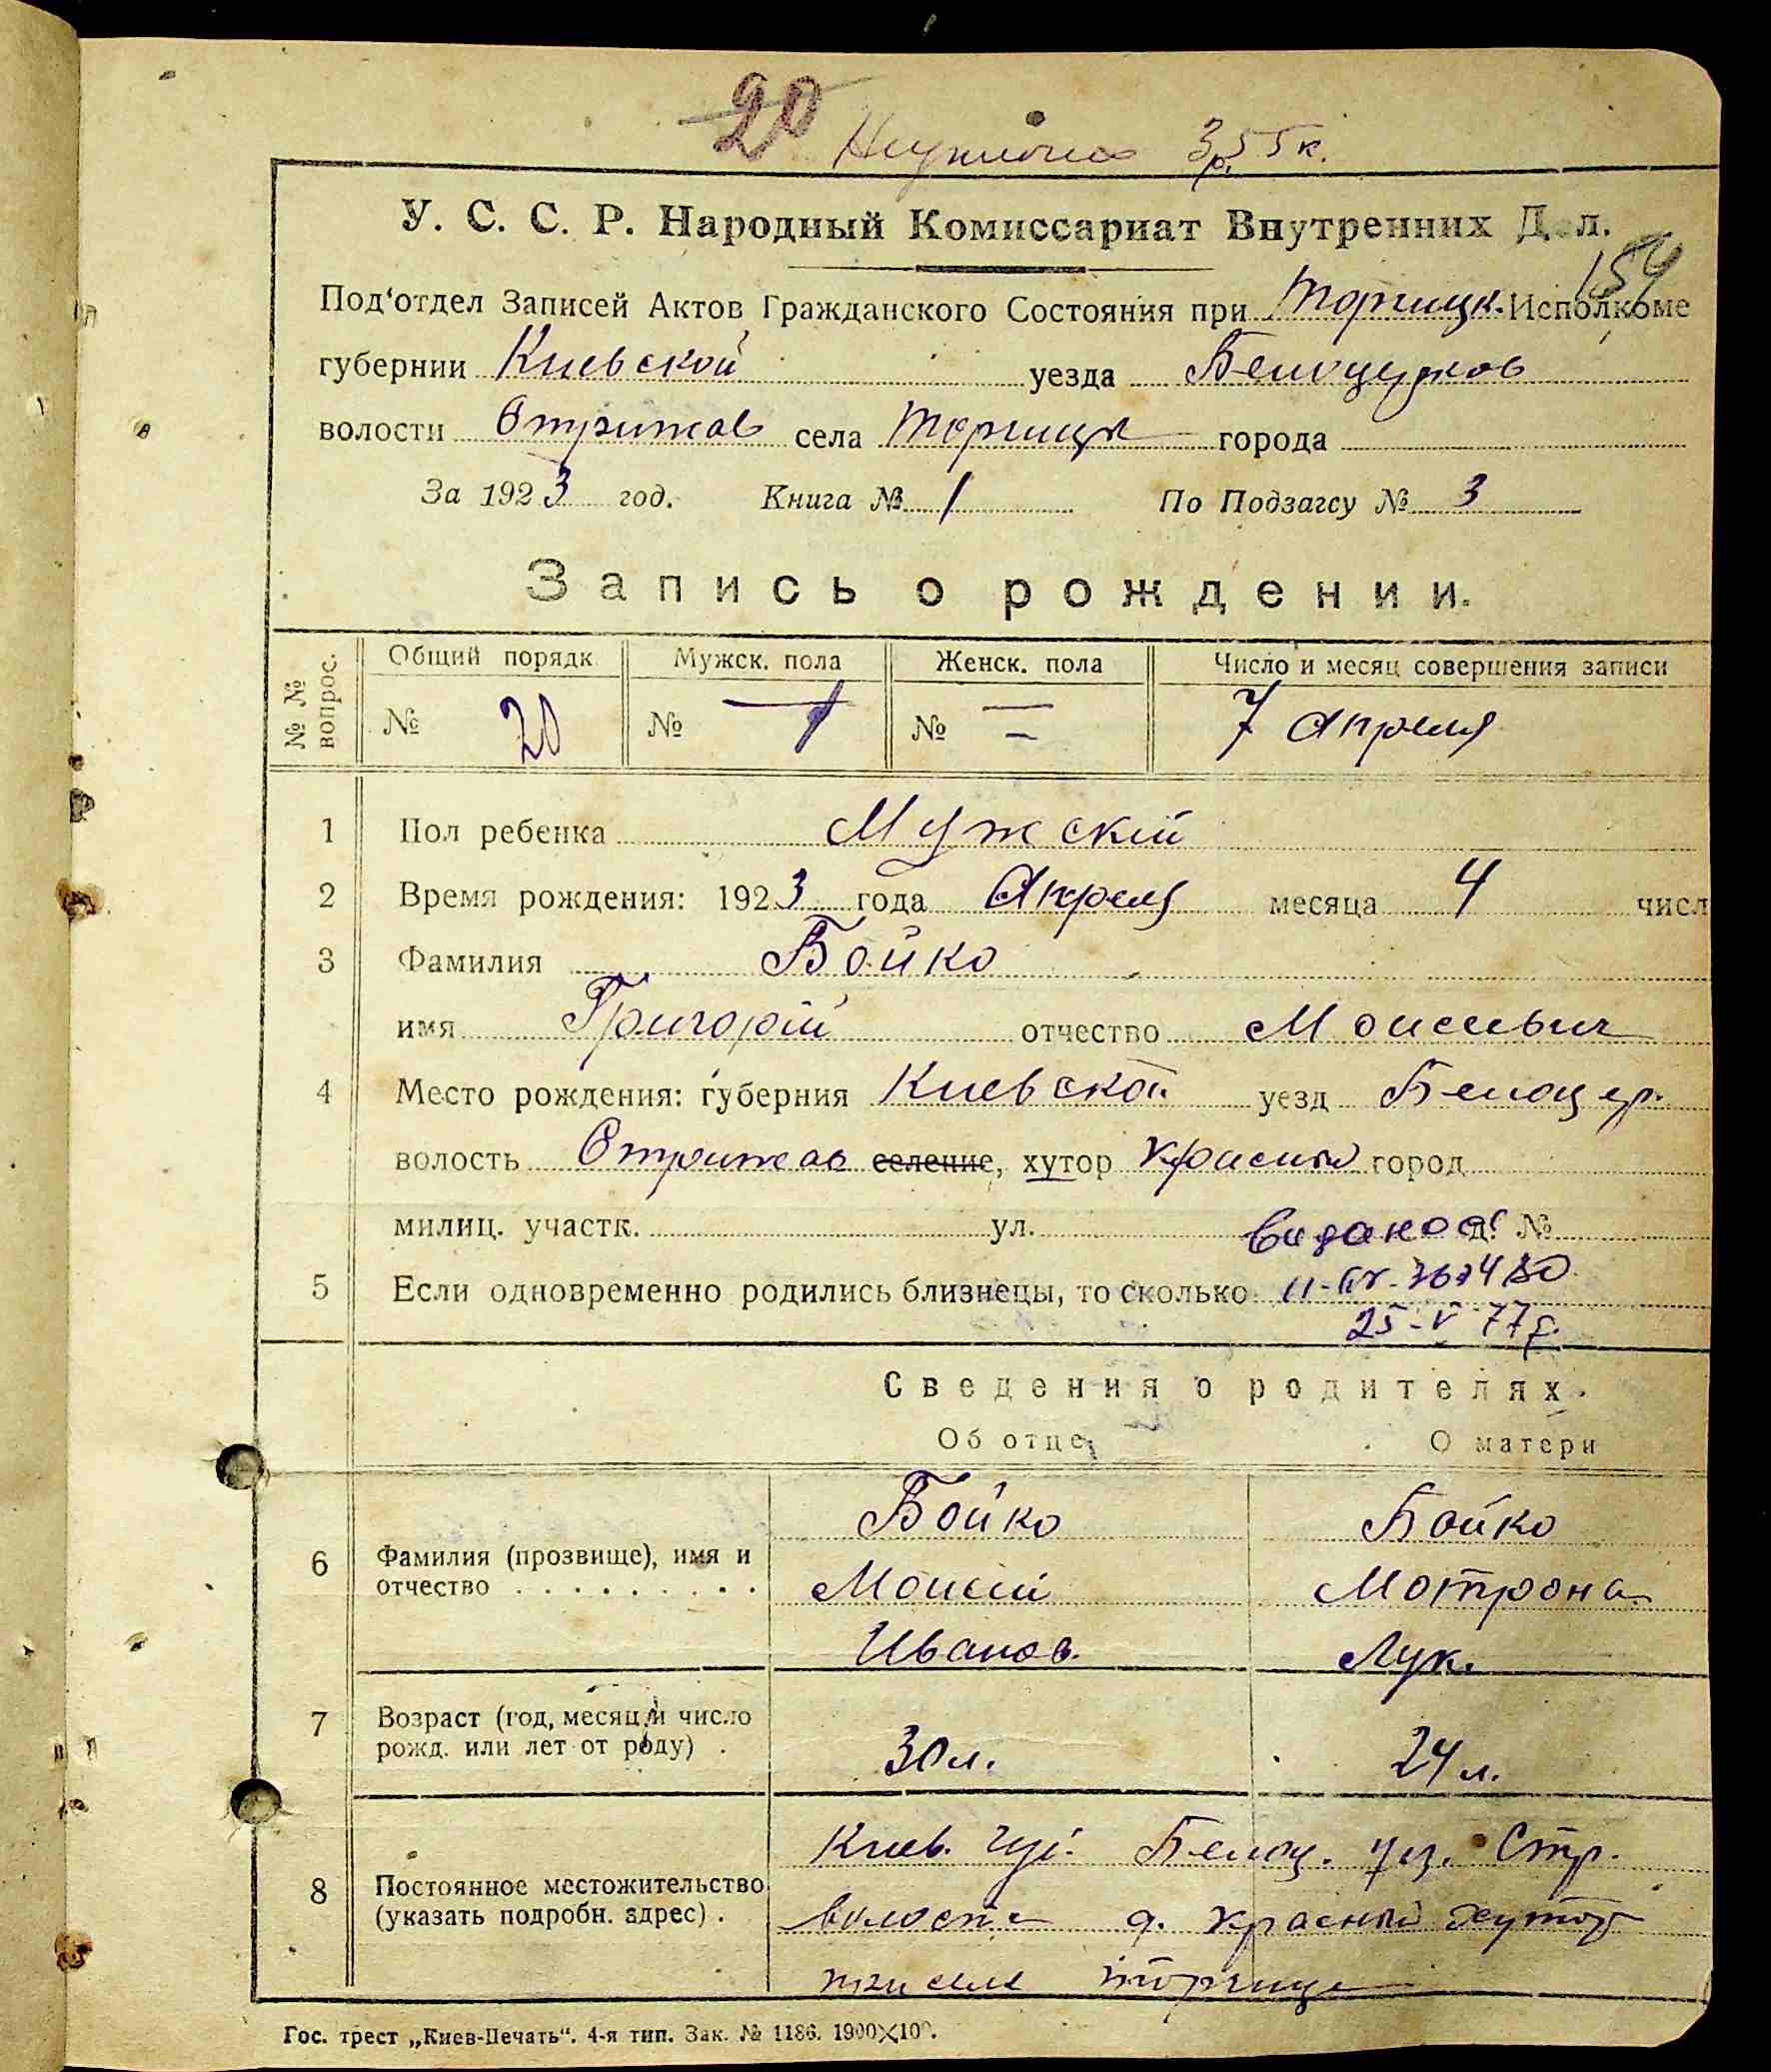 20
3р.55к.
У. С. С. Р. Народный Комиссариат Внутренних Дел.
154
Под'отдел Записей Актов Гражданского Состояния при Торчицк. Исполкоме
губернии Киевской уезда Белоцерков
волости Стрижав села Торчицы города
За 1923 год. Книга № 1 По Подзагсу № 3
Запись о рождении.
№ № вопрос. Общий порядк Мужск. пола Женск. пола Число и месяц совершения записи
№ 20 № № — 7 Апреля
1 Пол ребенка Мужский
2 Время рождения: 1923 года Апреля месяца 4 числ
3 Фамилия Бойко
имя Григорій отчество Моисеевич
4 Место рождения: губерния Киевской уезд Белоцер.
волость Стрижав селение, хутор Красный город
милиц. участк. ул. д. №
5 Если одновременно родились близнецы, то сколько
25-V 77г.
Сведения о родителях.
Об отце О матери
Бойко Бойко
6 Фамилия (прозвище), имя и отчество . . . . . . . . . Моисей Мотрона
Иванов. Лук.
7 Возраст (год, месяц и число рожд. или лет от роду) . 30 л. 24 л.
Киев. губ. Белоц. уез. Стр.
8 Постоянное местожительство (указать подробн. адрес) . волости д. Красный Хутор
при селе Торчице
Гос. трест „Киев-Печать“. 4-я тип. Зак. № 1186. 1900×100.